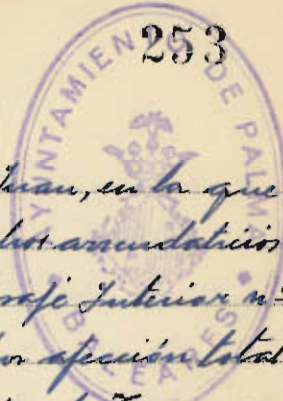 253
AYUNTAMIENTO DE PALMA
BALEARES
Juan, en la que
arrendaticios
saje Interior nº
por afección total